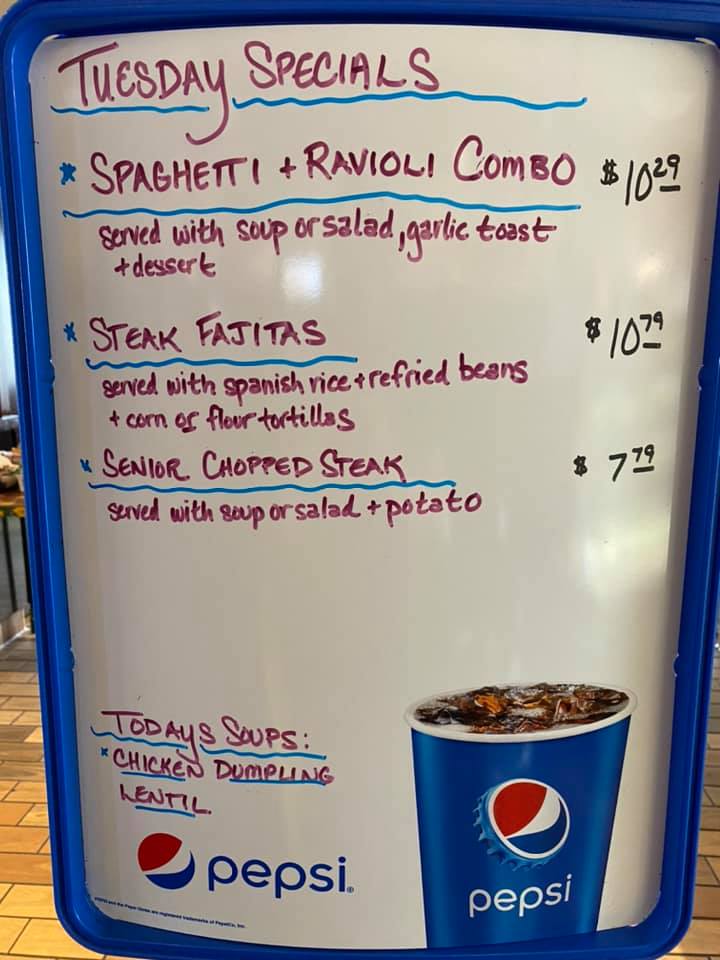 TUESDAY SPECIALS
* SPAGHETTI + RAVIOLI COMBO $10.29
served with soup or salad, garlic toast
+ dessert
* STEAK FAJITAS $10.79
served with spanish rice + refried beans
+ corn or flour tortillas
* SENIOR CHOPPED STEAK $7.79
served with soup or salad + potato
TODAYS SOUPS:
* CHICKEN DUMPLING
LENTIL
pepsi®
pepsi
PEPSI and the Pepsi Globe are registered trademarks of PepsiCo, Inc.